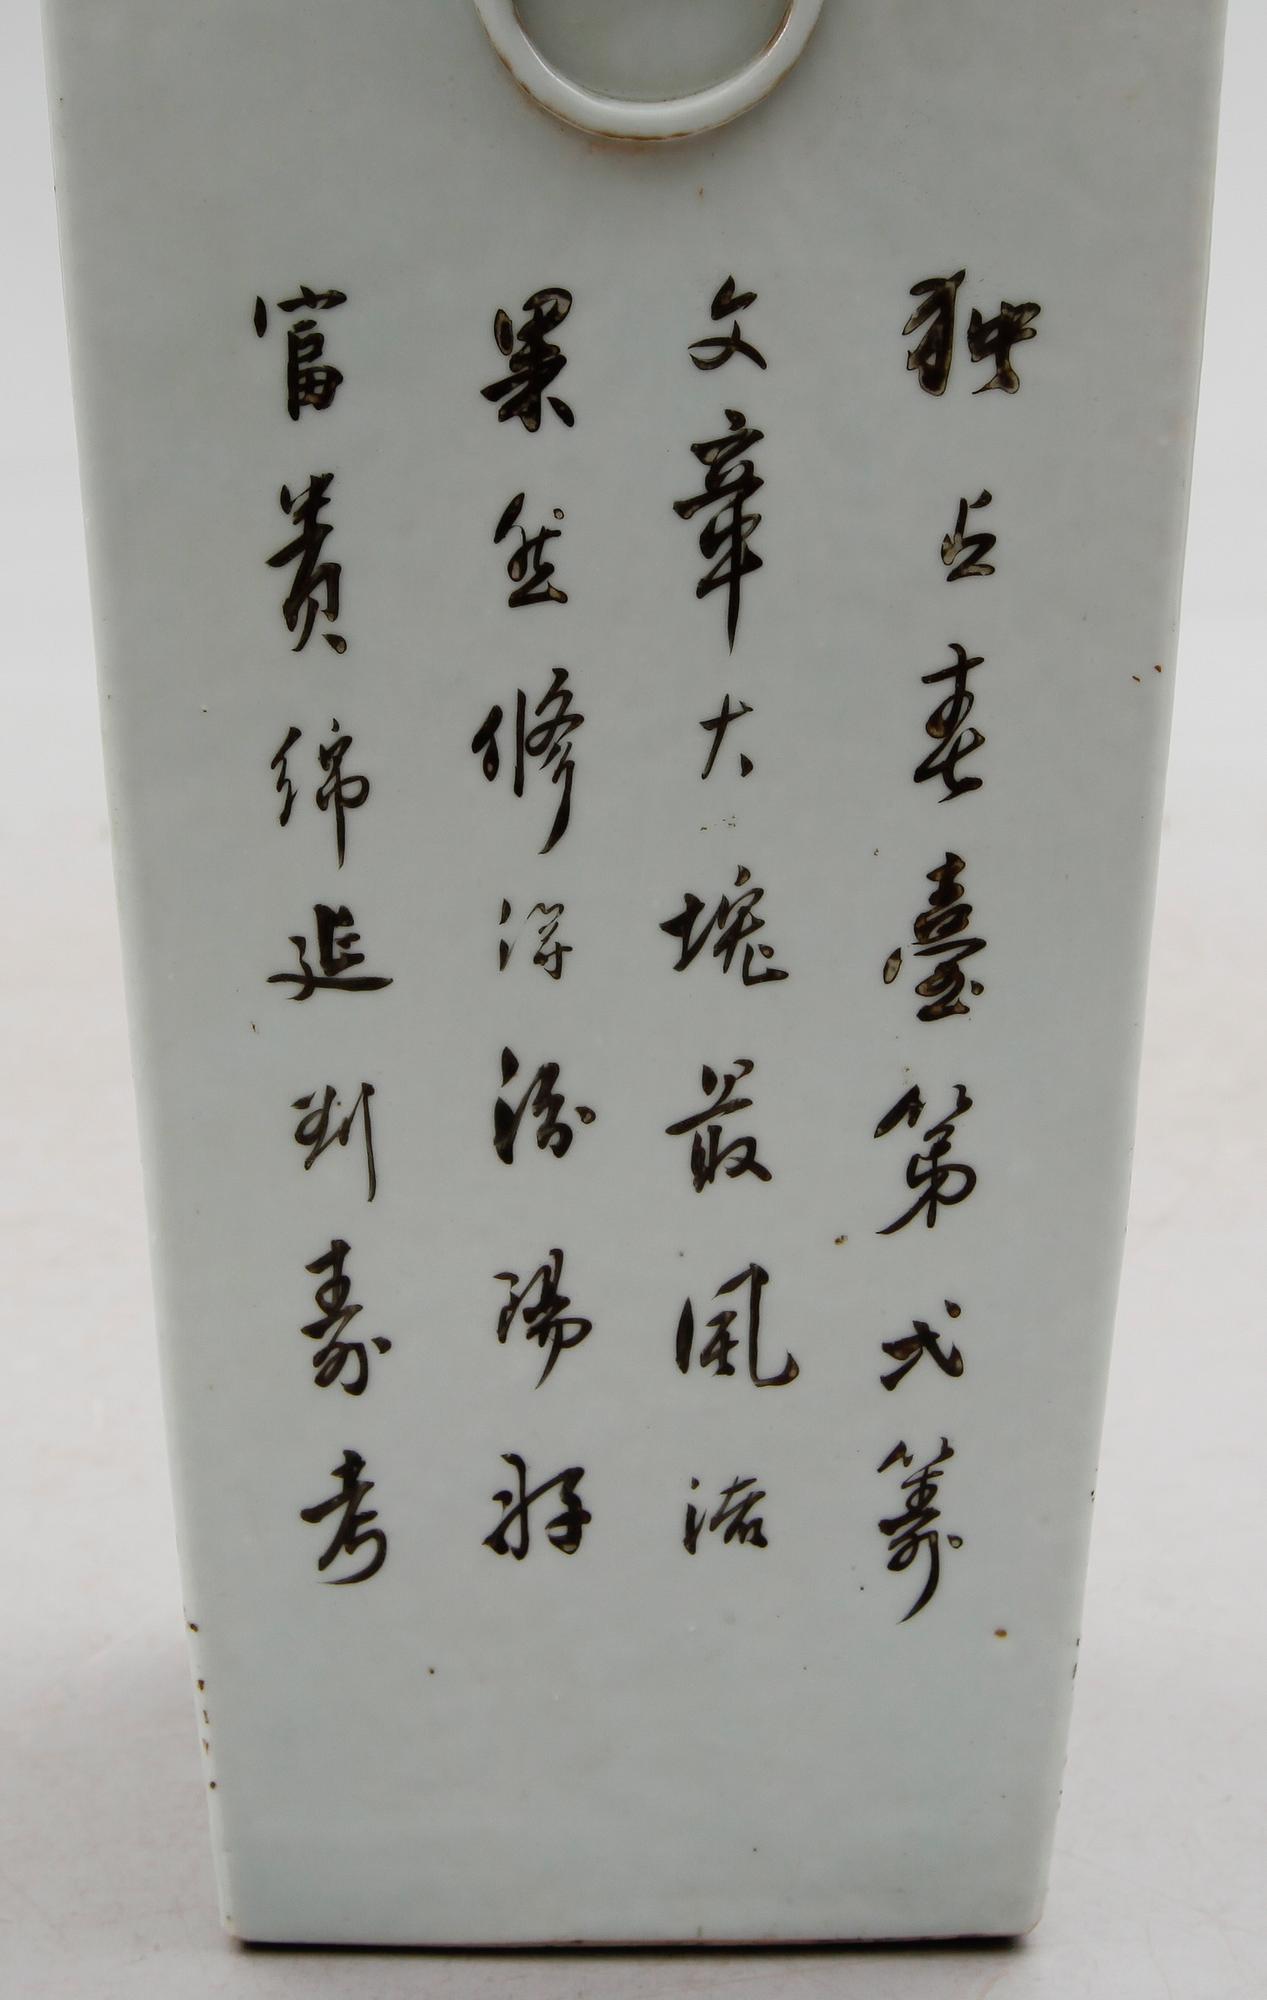 独占春臺第弌籌
文章大塊最風流
果然修得汾陽好
富貴綿延到壽考